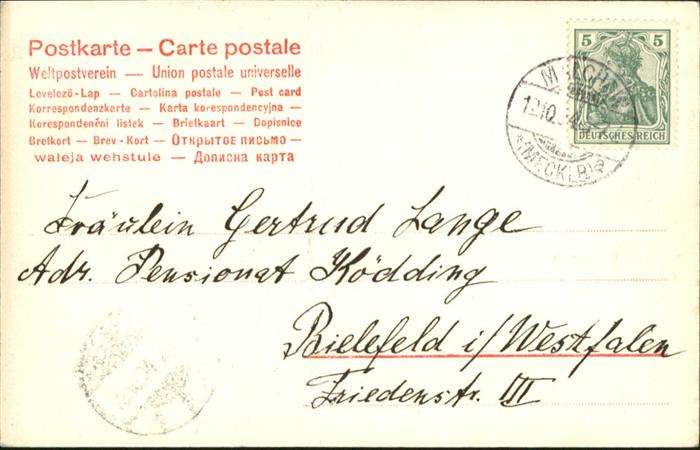 Postkarte — Carte postale
Weltpostverein — Union postale universelle
Levelező-Lap — Cartolina postale — Post card
Korrespondenzkarte — Karta korespondencyjna —
Korespondenční lístek — Briefkaart — Dopisnice
Brefkort — Brev-Kort — Открытое письмо —
waleja wehstule — Дописна карта
5 5
DEUTSCHES REICH
12.10.
(MECKLB)
Fräulein Gertrud Lange
Adr. Pensionat Ködding
Bielefeld i/Westfalen
Friedenstr. III